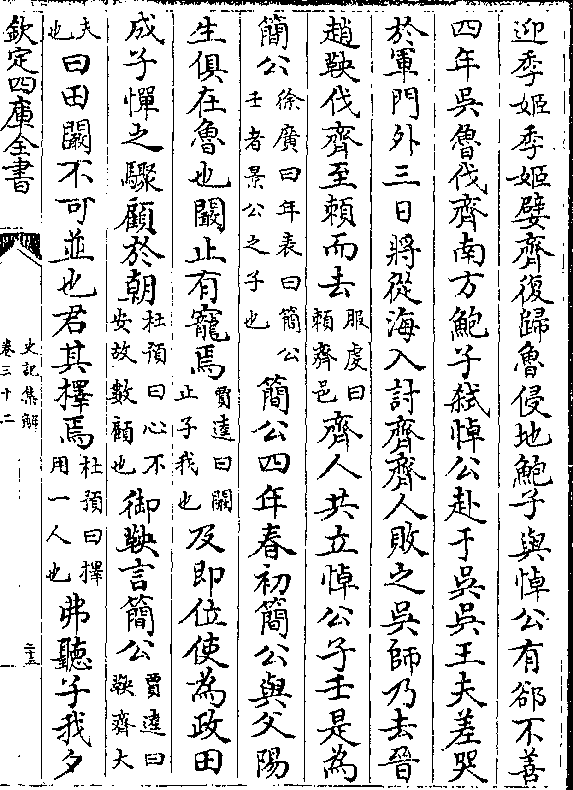 迎季姬季姬嬖齊復歸魯侵地鮑子與悼公有郤不善
四年吳魯伐齊南方鮑子弑悼公赴于吳吳王夫差哭
於軍門外三日將從海入討齊齊人敗之吳師乃去晉
趙鞅伐齊至賴而去服虔曰賴齊邑齊人共立悼公子壬是為
簡公徐廣曰年表曰簡公壬者景公之子也簡公四年春初簡公與父陽
生俱在魯也闞止有寵焉賈逵曰闞止子我也及即位使為政田
成子憚之驟顧於朝杜預曰心不安故數顧也御鞅言簡公賈逵曰鞅齊大
夫也曰田闞不可並也君其擇焉杜預曰擇用一人也弗聽子我夕
欽定四庫全書
史記集解
卷三十二
二十五